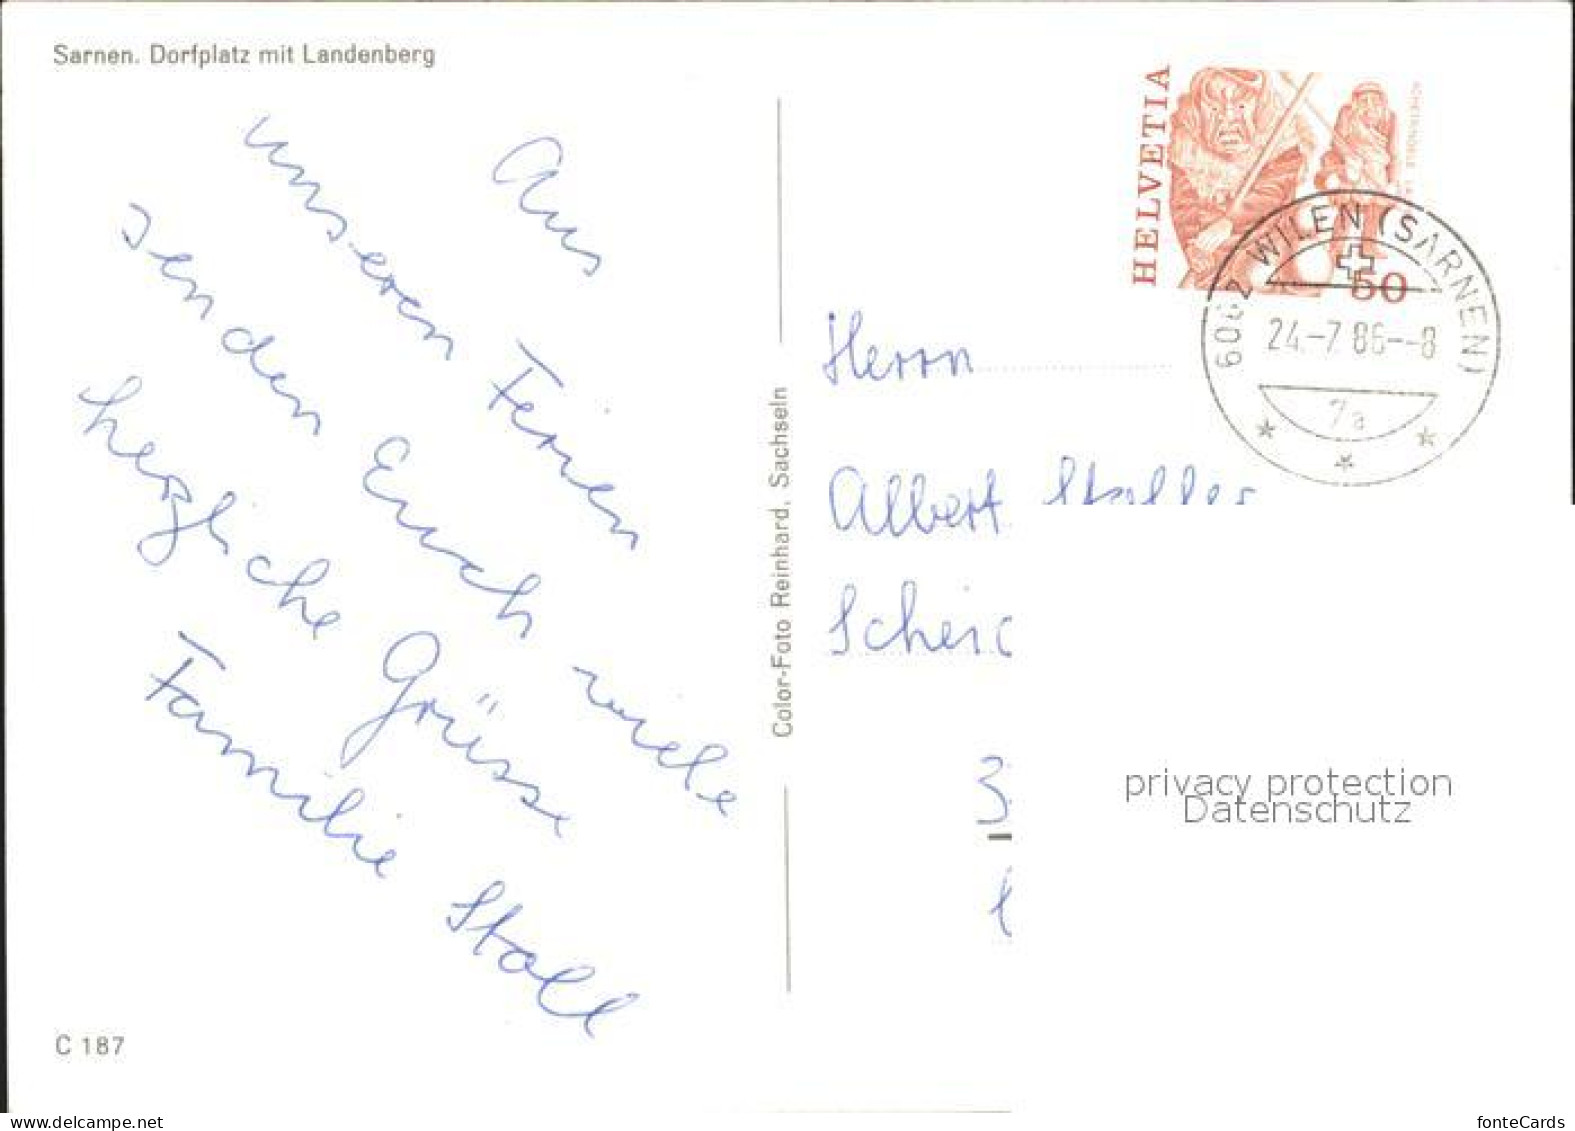 Sarnen. Dorfplatz mit Landenberg
Aus
unseren Ferien
senden Euch viele
herzliche Grüsse
Familie Stoll
C 187
Color-Foto Reinhard, Sachseln
HELVETIA
50
6062 WILEN (SARNEN)
24.-7.86--8
7a
Herrn
Albert
3
privacy protection
Datenschutz
fonteCards